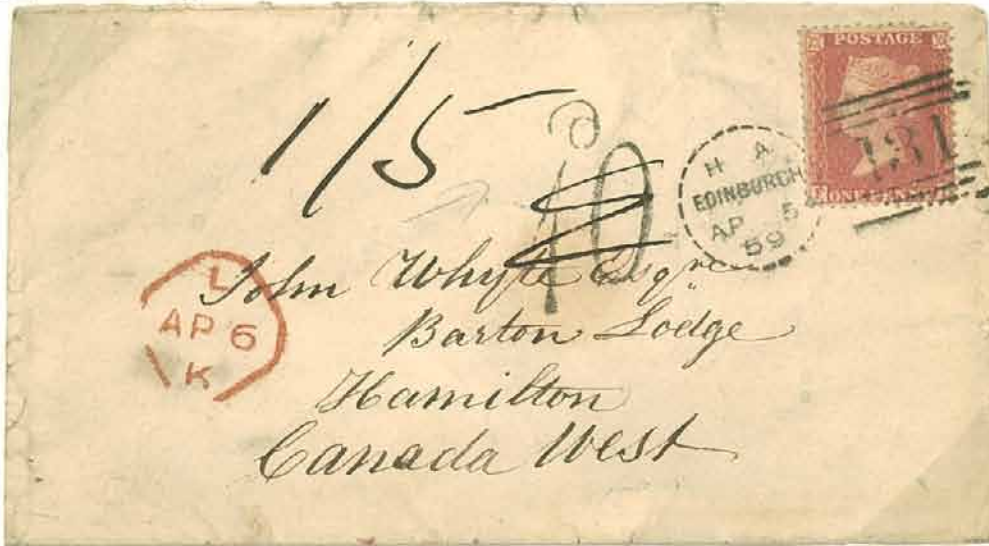 POSTAGE
ONE PENNY
131
1/5
10
H A
EDINBURGH
AP 5
59
L
AP 6
K
John Whyte Esqre
Barton Lodge
Hamilton
Canada West